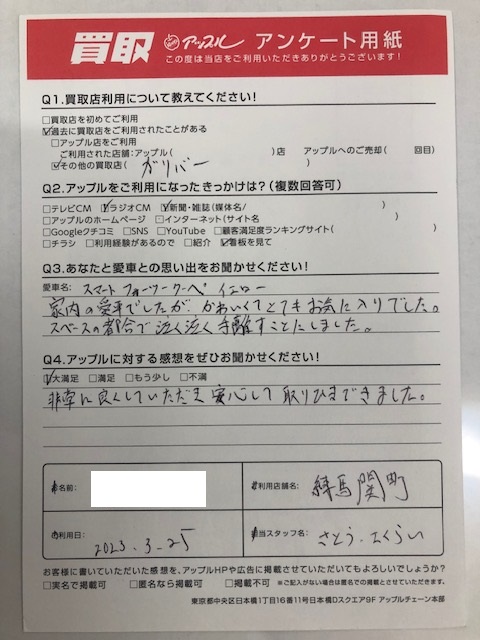 買取 アップル アンケート用紙
この度は当店をご利用いただきありがとうございます!
Q1.買取店利用について教えてください!
□買取店を初めてご利用
☑過去に買取店をご利用されたことがある
□アップル店をご利用
ご利用された店舗:アップル( )店 アップルへのご売却( 回目)
☑その他の買取店( ガリバー )
Q2.アップルをご利用になったきっかけは?(複数回答可)
□テレビCM ☑ラジオCM ☑新聞・雑誌(媒体名/ )
□アップルのホームページ □インターネット(サイト名 )
□Googleクチコミ □SNS □YouTube □顧客満足度ランキングサイト( )
□チラシ □利用経験があるので □紹介 ☑看板を見て
Q3.あなたと愛車との思い出をお聞かせください!
愛車名: スマート フォーツークーペ イエロー
家内の愛車でしたが、かわいくてとてもお気に入りでした。
スペースの都合で泣く泣く手離すことにしました。
Q4.アップルに対する感想をぜひお聞かせください!
☑大満足 □満足 □もう少し □不満
非常に良くしていただき安心して取りひきできました。
名前:
利用店舗名: 練馬関町
利用日: 2023.3.25
担当スタッフ名: さとう.
お客様に書いていただいた感想を、アップルHPや広告に掲載させていただいてもよろしいでしょうか?
□実名で掲載可 □匿名なら掲載可 □掲載不可 ※ご記入がない場合は匿名での掲載とさせていただきます。
東京都中央区日本橋1丁目16番11号日本橋Dスクエア9F アップルチェーン本部